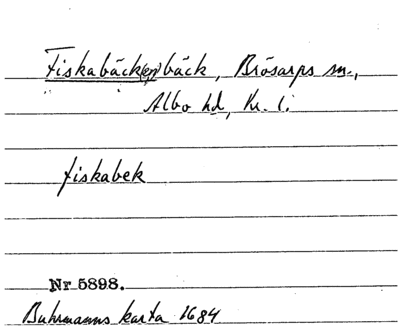 Fiskabäck(en) bäck, Brösarps sn.,
Albo hd, Kr. l.
fiskabek
Nr 5898.
Buhrmanns karta 1684